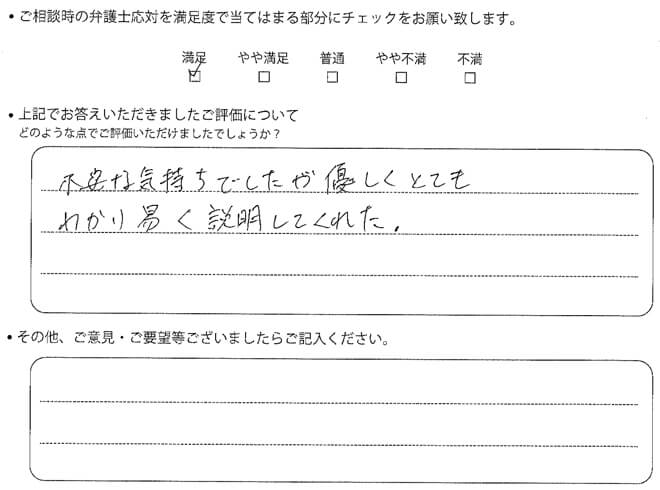 ・ご相談時の弁護士応対を満足度で当てはまる部分にチェックをお願い致します。
満足 やや満足 普通 やや不満 不満
☑ □ □ □ □
・上記でお答えいただきましたご評価について
どのような点でご評価いただけましたでしょうか?
不安な気持ちでしたが優しくとても
わかり易く説明してくれた.
・その他、ご意見・ご要望等ございましたらご記入ください。